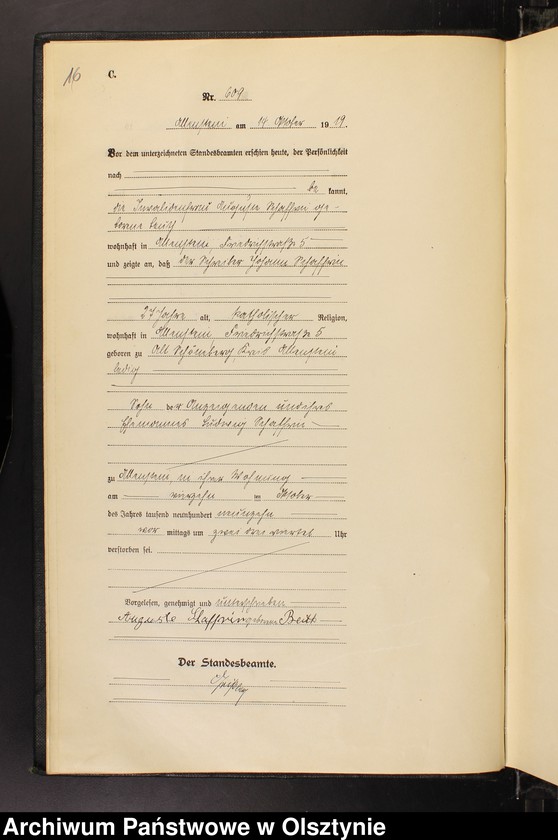 16
C.
Nr. 609
Allenstein am 14 Oktober 1919.
Vor dem unterzeichneten Standesbeamten erschien heute, der Persönlichkeit
nach
be kannt,
die Invalidenfrau Auguste Schaffrin ge-
borene
wohnhaft in Allenstein, Friedrichstraße 5
und zeigte an, daß der Schreiber Johann Schaffrin
27 Jahre alt, katholischer Religion,
wohnhaft in Allenstein Friedrichstraße 5
geboren zu Alt Schöneberg, Kreis Allenstein
ledig
Sohn der Anzeigenden und ihres
Ehemannes Ludwig Schaffrin
zu Allenstein, in ihrer Wohnung
am vierzehn ten Oktober
des Jahres tausend neunhundert neunzehn
vor mittags um zwei drei viertel Uhr
verstorben sei.
Vorgelesen, genehmigt und unterschrieben
Auguste Schaffrin geborene
Der Standesbeamte.
Archiwum Państwowe w Olsztynie